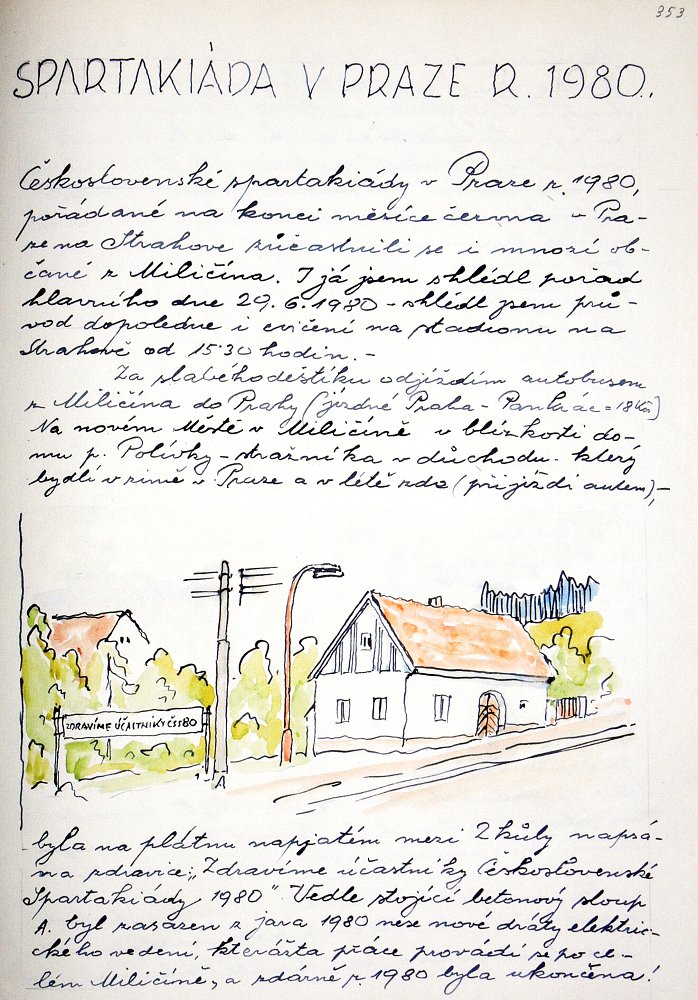 353
SPARTAKIÁDA V PRAZE R. 1980.
Československé spartakiády v Praze r. 1980,
pořádané na konci měsíce června v Pra-
ze na Strahově zúčastnili se i mnozí ob-
čané z Miličína. I já jsem shlédl pořad
hlavního dne 29.6.1980 - shlédl jsem prů-
vod dopoledne i cvičení na stadionu na
Strahově od 15:30 hodin. -
Za slabého deštíku odjíždím autobusem
z Miličína do Prahy (jízdné Praha - Pankrác = 18 Kčs)
Na novém Městě v Miličíně v blízkosti do-
mu p. Polívky - strážníka v důchodu - který
bydlí v zimě v Praze a v létě zde (přijíždí autem), -
ZDRAVÍME ÚČASTNÍKY ČS:80
A
byla na plátnu napjatém mezi 2 kůly napsá-
na zdravice: „Zdravíme účastníky Československé
Spartakiády 1980". Vedle stojící betonový sloup
A. byl zasazen z jara 1980 nese nové dráty elektric-
kého vedení, kterážto práce provádí se po ce-
lém Miličíně, a zdárně r. 1980 byla ukončena!